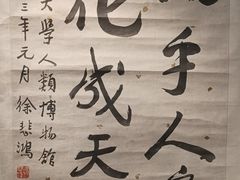 手人
化成天
大學人類博物館
三年元月徐悲鴻